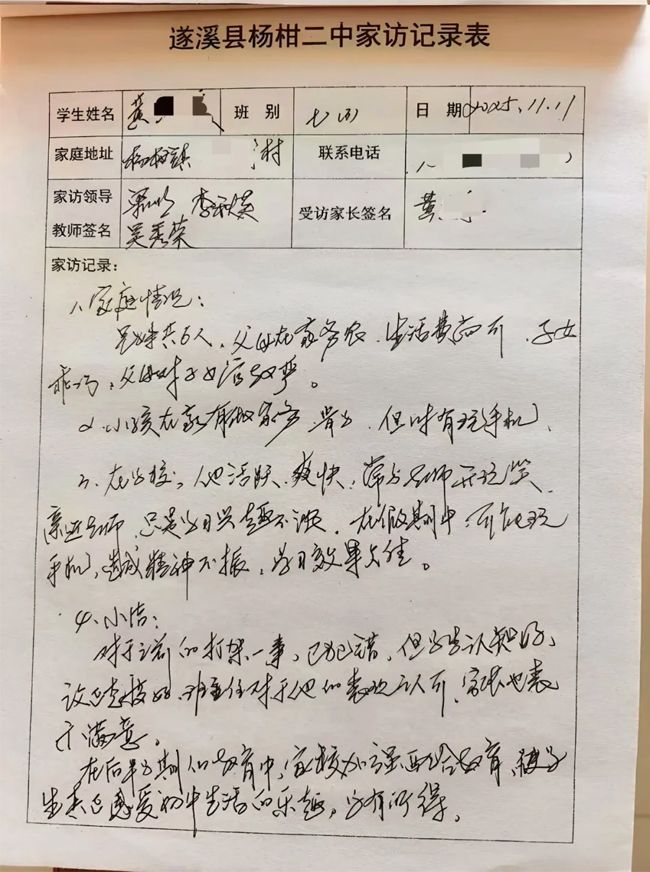 遂溪县杨柑二中家访记录表
学生姓名 黄 班 别 七(4) 日 期 2025.11.11
家庭地址 杨柑镇 村 联系电话
家访领导 李
教师签名 吴秀荣 受访家长签名 黄
家访记录:
1、家庭情况:
兄妹共6人,父母在家务农,生活费尚可,子女
乖巧,父母对子女管教严。
2、小孩在家有做家务,但时有玩手机,
3、在学校,他活跃、爽快,常与老师开玩笑,
亲近老师,只是学习兴趣不浓,在假期中,可能玩
手机,造成精神不振,学习效果欠佳。
4、小结:
对于之前的打架一事,已犯错,但学生认知好,
改正, 班主任对于他的表现认可,家长也表
示满意。
在后半学期的教育中,家校加强配合教育,让学
生真正感受初中生活的乐趣,学有所得。